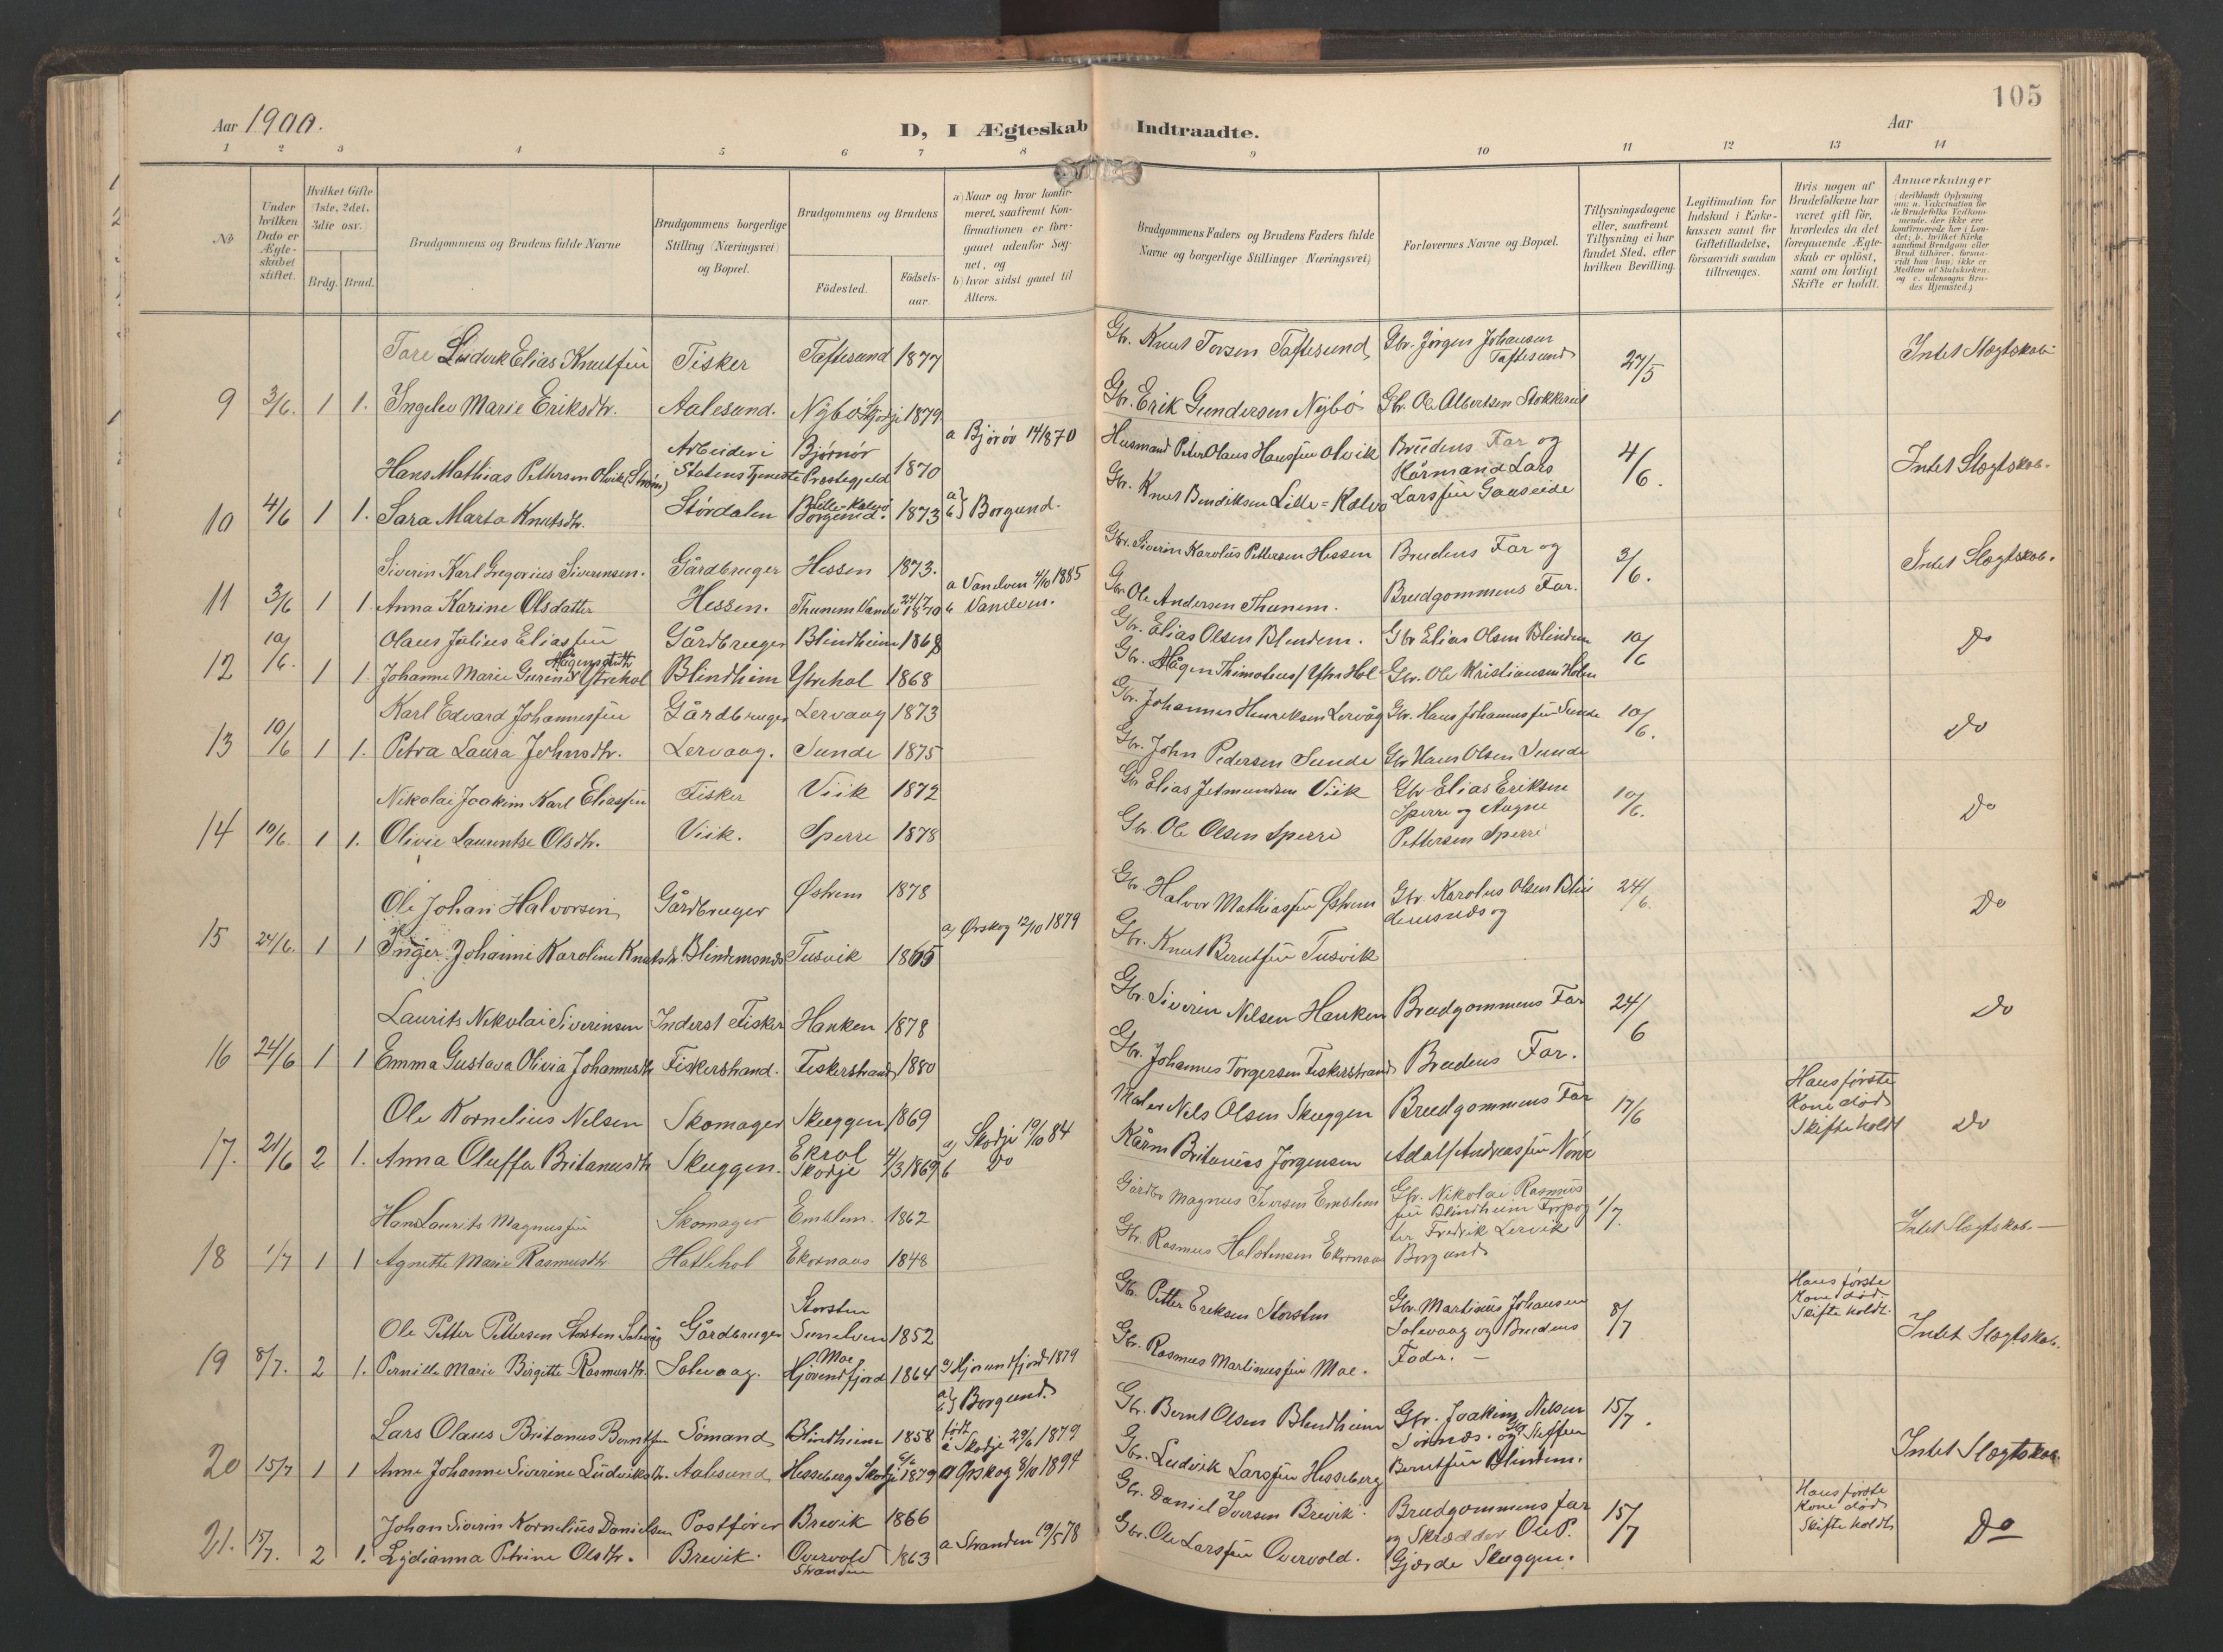 105
Aar 1900.
D, I Ægteskab Indtraadte.
Aar
1 2 3 4 5 6 7 8 9 10 11 12 13 14
No
Under hvilken Dato er Ægteskabet stiftet.
Hvilket Gifte (1ste, 2det, 3die osv.)
Brdg. Brud.
Brudgommens og Brudens fulde Navne
Brudgommens borgerlige Stilling (Næringsvei) og Bopæl.
Brudgommens og Brudens
Födested.
Födselsaar.
a) Naar og hvor konfirmeret, saafremt Konfirmationen er foregaaet udenfor Sognet, og
b) hvor sidst gaaet til Alters.
Brudgommens Faders og Brudens Faders fulde Navne og borgerlige Stillinger (Næringsvei)
Forlovernes Navne og Bopæl.
Tillysningsdagene eller, saafremt Tillysning ei har fundet Sted, efter hvilken Bevilling.
Legitimation for Indskud i Enkekassen samt for Giftetilladelse, forsaavidt saadan tiltrænges.
Hvis nogen af Brudefolkene har været gift för, hvorledes da det foregaaende Ægteskab er oplöst, samt om lovligt Skifte er holdt.
Anmærkninger
(deriblandt Oplysning om: a. Vakcination for de Brudefolks Vedkommende, der ikke ere konfirmerede her i Landet; b. hvilket Kirkesamfund Brudgom eller Brud tilhörer, forsaavidt han (hun) ikke er Medlem af Statskirken, og c. udensogns Brudes Hjemsted.)
Tore Ludvik Elias Knutsen Fisker Taftesund 1877 Gbr. Knut Torsen Taftesund Gbr. Jørgen Johansen Taftesund 27/5 Intet Slægtskab
9 3/6. 1 1. Ingelev Marie Eriksdtr. Aalesund. Nybö Skodje 1879 Gbr. Erik Gundersen Nybö Gbr. Ole Albertsen Stokkereit
Hans Mathias Pettersen Olvik (Strøm) Arbeider i Statens Tjeneste Bjørnør Prestegjeld 1870 a Bjørør 14/870 Husmand Peter Olaus Hansen Olvik Brudens Far og Kårmand Lars Larssen Gaaseide 4/6. Intet Slægtskab.
10 4/6 1 1. Sara Marta Knutsdtr. Stördalen Lille-Kalvö Borgund. 1873 a} b} Borgund. Gbr. Knut Bendiksen Lille-Kalvø
Siverin Karl Gregorius Siverinsen. Gårdbruger Hessen 1873. Gbr. Siverin Karolus Pettersen Hessen Brudens Far og Brudgommens Far. 3/6. Intet Slægtskab.
11 3/6 1 1 Anna Karine Olsdatter Hessen. Thunem Vanelv 24/7 1870 a Vanelven 4/10 1885 b Vanelven. Gbr. Ole Andersen Thunem.
Olaus Julius Eliassen Gårdbruger Blindheim 1868 Gbr. Elias Olsen Blendem. Gbr Elias Olsen Blindem 10/6 Do
12 10/6. 1 1. Johanne Marie Gurine Mågensdtr Ytrehol Blindheim Ytrehol 1868 Gbr. Mågen Thimoteus Ytre Hol Gbr. Ole Kristiansen Holen
Karl Edvard Johannessen Gårdbruger Lervaag 1873 Gbr. Johannes Henriksen Lervåg Gbr. Hans Johannessen Sunde 10/6. Do
13 10/6 1 1. Petra Laura Johnsdtr. Lervaag. Sunde 1875 Gbr. John Pedersen Sunde Gbr Hans Olsen Sunde
Nikolai Joakim Karl Eliassen Fisker Viik 1872 Gbr Elias Jetmundsen Viik Gbr Elias Eriksen Sperre og Augne Pettersen Sperre 10/6. Do
14 10/6. 1 1. Olivie Laurentse Olsdtr. Viik. Sperre 1878 Gbr. Ole Olsen Sperre
Ole Johan Halvorsen Gårdbruger Østrem 1878 Gbr. Halvor Mathiassen Østrem Gbr. Karolus Olsen Blindemsnæs og 24/6. Do
15 24/6. 1 1 Inger Johanne Karoline Knutsdtr. Blindemsnæs Tusvik 1865 a) Ørskog 12/10 1879 Gbr. Knut Berntsen Tusvik
Laurits Nikolai Siverinsen Inderst Fisker Hanken 1878 Gbr. Siverin Nilsen Hanken Brudgommens Far 24/6 Do
16 24/6 1 1 Emma Gustava Olivia Johannesdtr Fiskerstrand. Fiskerstrand 1880 Gbr. Johannes Torgersen Fiskerstrand Brudens Far.
Ole Kornelius Nelsen Skomager Skuggen 1869 Maler Nels Olsen Skuggen Brudgommens Far 17/6 Hans første Kone død Skifte holdt Do
17. 21/6 2 1. Anna Oluffa Britanusdtr Skuggen. Ekrol Skodje 4/3 1869 a) Skodje 19/10 84 b Do Kårm Britanus Jørgensen Adolf Andreassen Nörve
Hans Laurits Magnussen Skomager Emblem. 1862 Gårdbr Magnus Iversen Emblem Gbr. Nikolai Rasmussen Blindheim Frederik Lervik Borgund 1/7. Intet Slægtskab.—
18 1/7 1 1 Agnette Marie Rasmusdtr. Hatlehol Ekornaas 1848 Gbr. Rasmus Halstensen Ekornaas
Ole Petter Pettersen Storsten Solevåg Gårdbruger Storsten Sunelven 1852 Gbr. Petter Eriksen Storsten Gbr. Martinus Johansen Solevaag og Brudens Fader. — 8/7 Hans første Kone død. Skifte holdt. Intet Slægtskab.
19 8/7. 2 1. Pernille Marie Birgitte Rasmusdtr. Solevaag. Moe Hjørendfjord 1864 a) Hjørundfjord 1879 a} b} Borgund. Gbr. Rasmus Martinussen Moe.
Lars Olaus Britanus Berntsen Sömand Blindheim 1858 født i Skodje 29/6 1879 Gbr. Bernt Olsen Blendheim Gbr. Joakim Nelsen og Steffen Berntsen Blindem. 15/7. Intet Slægtskab.
20 15/7 1 1 Anne Johanne Siverine Ludviksdtr. Aalesund Hesseberg Skodje 1879 a Ørskog 8/10 1894 Gbr. Ludvik Larssen Hesseberg
Johan Siverin Kornelius Danielsen Postfører Brevik 1866 Gbr. Daniel Iversen Brevik. Brudgommens far og Skrædder Ole P. Gjærde Skuggen. 15/7 Hans første Kone død Skifte holdt Do
21. 15/7. 2 1. Lydianna Petrine Olsdtr. Brevik. Overvold Stranden 1863 a Stranden 19/5 78 Gbr. Ole Larssen Overvold.